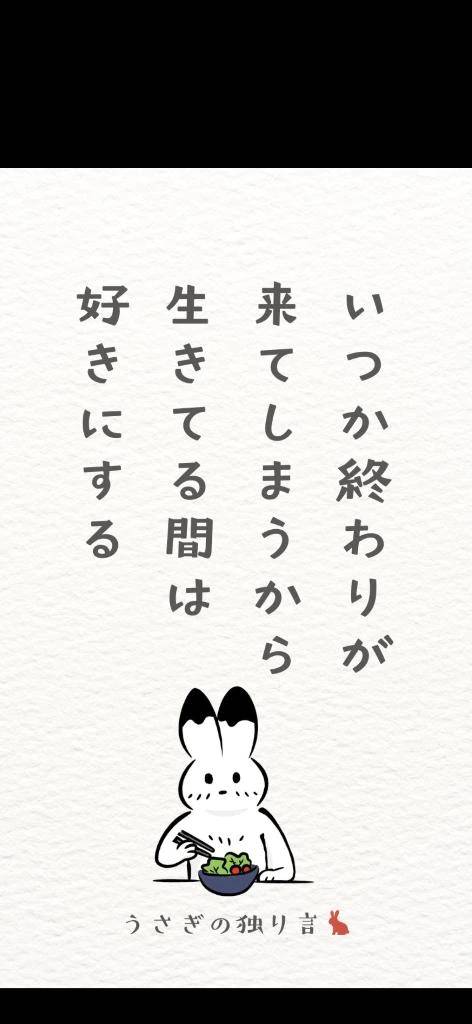 いつか終わりが
来てしまうから
生きてる間は
好きにする
うさぎの独り言